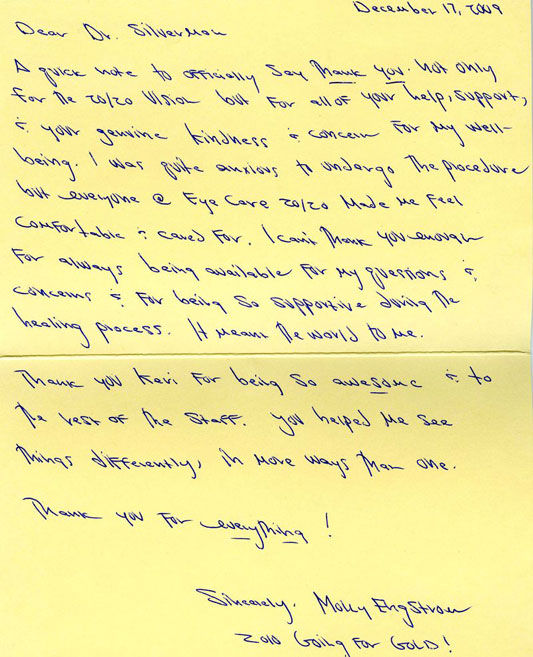 December 17, 2009
Dear Dr. Silverman
A quick note to officially say Thank you. Not only
for the 20/20 vision but for all of your help, support,
& your genuine kindness & concern for my well-
being. I was quite anxious to undergo the procedure
but everyone @ Eye Care 20/20 made me feel
comfortable & cared for. I can't thank you enough
for always being available for my questions &
concerns & for being so supportive during the
healing process. It meant the world to me.
Thank you Keri for being so awesome & to
the rest of the staff. You helped me see
things differently, in more ways than one.
Thank you for everything!
Sincerely, Molly Engstrom
2010 Going for GOLD!